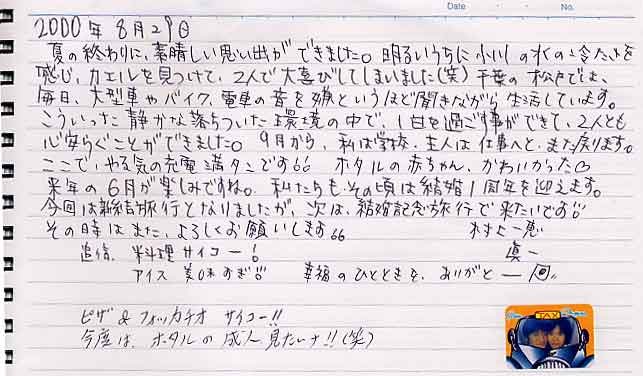 Date No.
2000年8月29日
夏の終わりに、素晴しい思い出ができました。明るいうちに小川の水の冷たさを
感じ、カエルを見つけて、2人で大喜びしてしまいました(笑)千葉の松戸では、
毎日、大型車やバイク、電車の音を嫌というほど聞きながら生活しています。
こういった静かな落ちついた環境の中で、1日を過ごす事ができて、2人とも
心安らぐことができました。9月から、私は学校、主人は仕事へと、また戻ります。
ここで、やる気の充電満タンです!! ホタルの赤ちゃん、かわいかった♡
来年の6月が楽しみですね。私たちも、その頃は結婚1周年を迎えます。
今回は新婚旅行となりましたが、次は、結婚記念旅行で来たいです!!
その時はまた、よろしくお願いします。 村上一恵
追伸、料理サイコー! 真一
アイス 美味すぎ!! 幸福のひとときを、ありがとー
ピザ&フォッカチオ サイコー!!
今度は、ホタルの成人見たいナ!!(笑)
TAXI